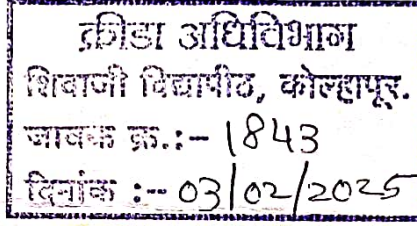 क्रीडा अधिविभाग
शिवाजी विद्यापीठ, कोल्हापूर.
जावक क्र.:- 1843
दिनांक :-- 03/02/2025